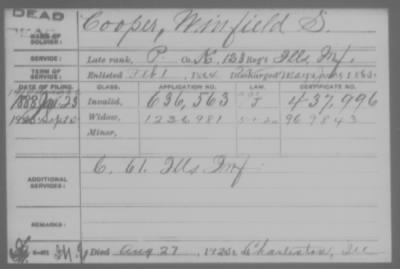 DEAD
Cooper, Winfield S.
NAME OF SOLDIER:
SERVICE: Late rank, P. Co. K, 123 Reg't Ills Inf.
TERM OF SERVICE: Enlisted Feb 1, 1864 Discharged 1865
DATE OF FILING. CLASS. APPLICATION NO. LAW. CERTIFICATE NO.
1888 23 Invalid, 636,563 J 437,996
Sep 15 Widow, 1236981 967843
Minor,
C. 61. Ills Inf
ADDITIONAL SERVICES:
REMARKS:
Died Aug 27, 192 Charleston, Ill